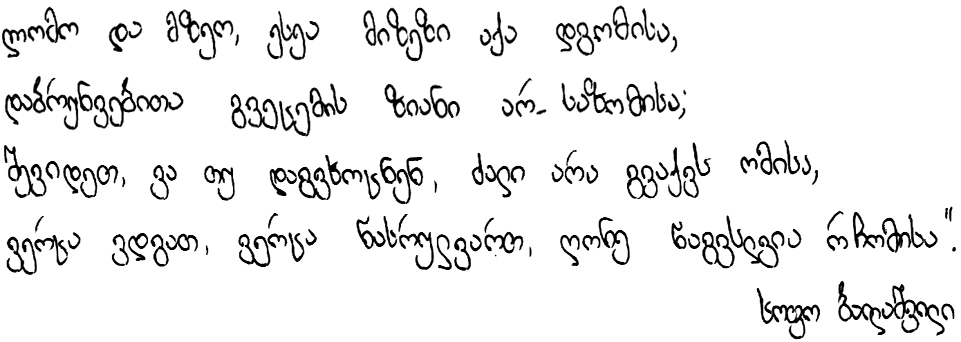 ლომო და მზეო, ესეა მიზეზი აქა დგომისა,
დაბრუნვებითა გვეცემის ზიანი არ-საზომისა;
შევიდეთ, ვა თუ დაგვხოცნენ, ძალი არა გვაქვს ომისა,
ვერცა ვდგათ, ვერცა წასრულვართ, ღონე წაგვსვლია რჩომისა".
სოფო ბალაშვილი